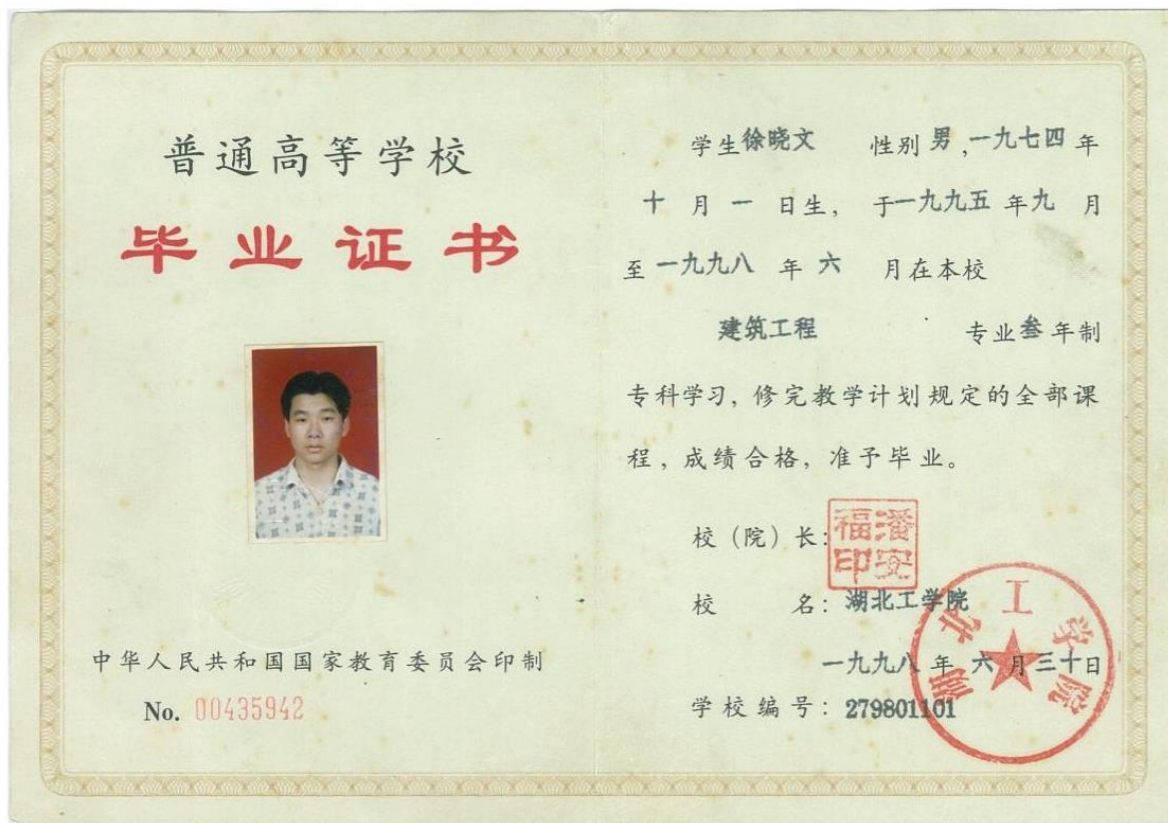 普通高等学校
毕业证书
中华人民共和国国家教育委员会印制
No. 00435942
学生徐晓文 性别男,一九七四年
十月一日生, 于一九九五年九月
至一九九八年六月在本校
建筑工程 专业叁年制
专科学习, 修完教学计划规定的全部课
程, 成绩合格, 准予毕业。
校(院)长: 潘安福印
校 名: 湖北工学院
一九九八年六月三十日
学校编号: 279801101
湖北工学院